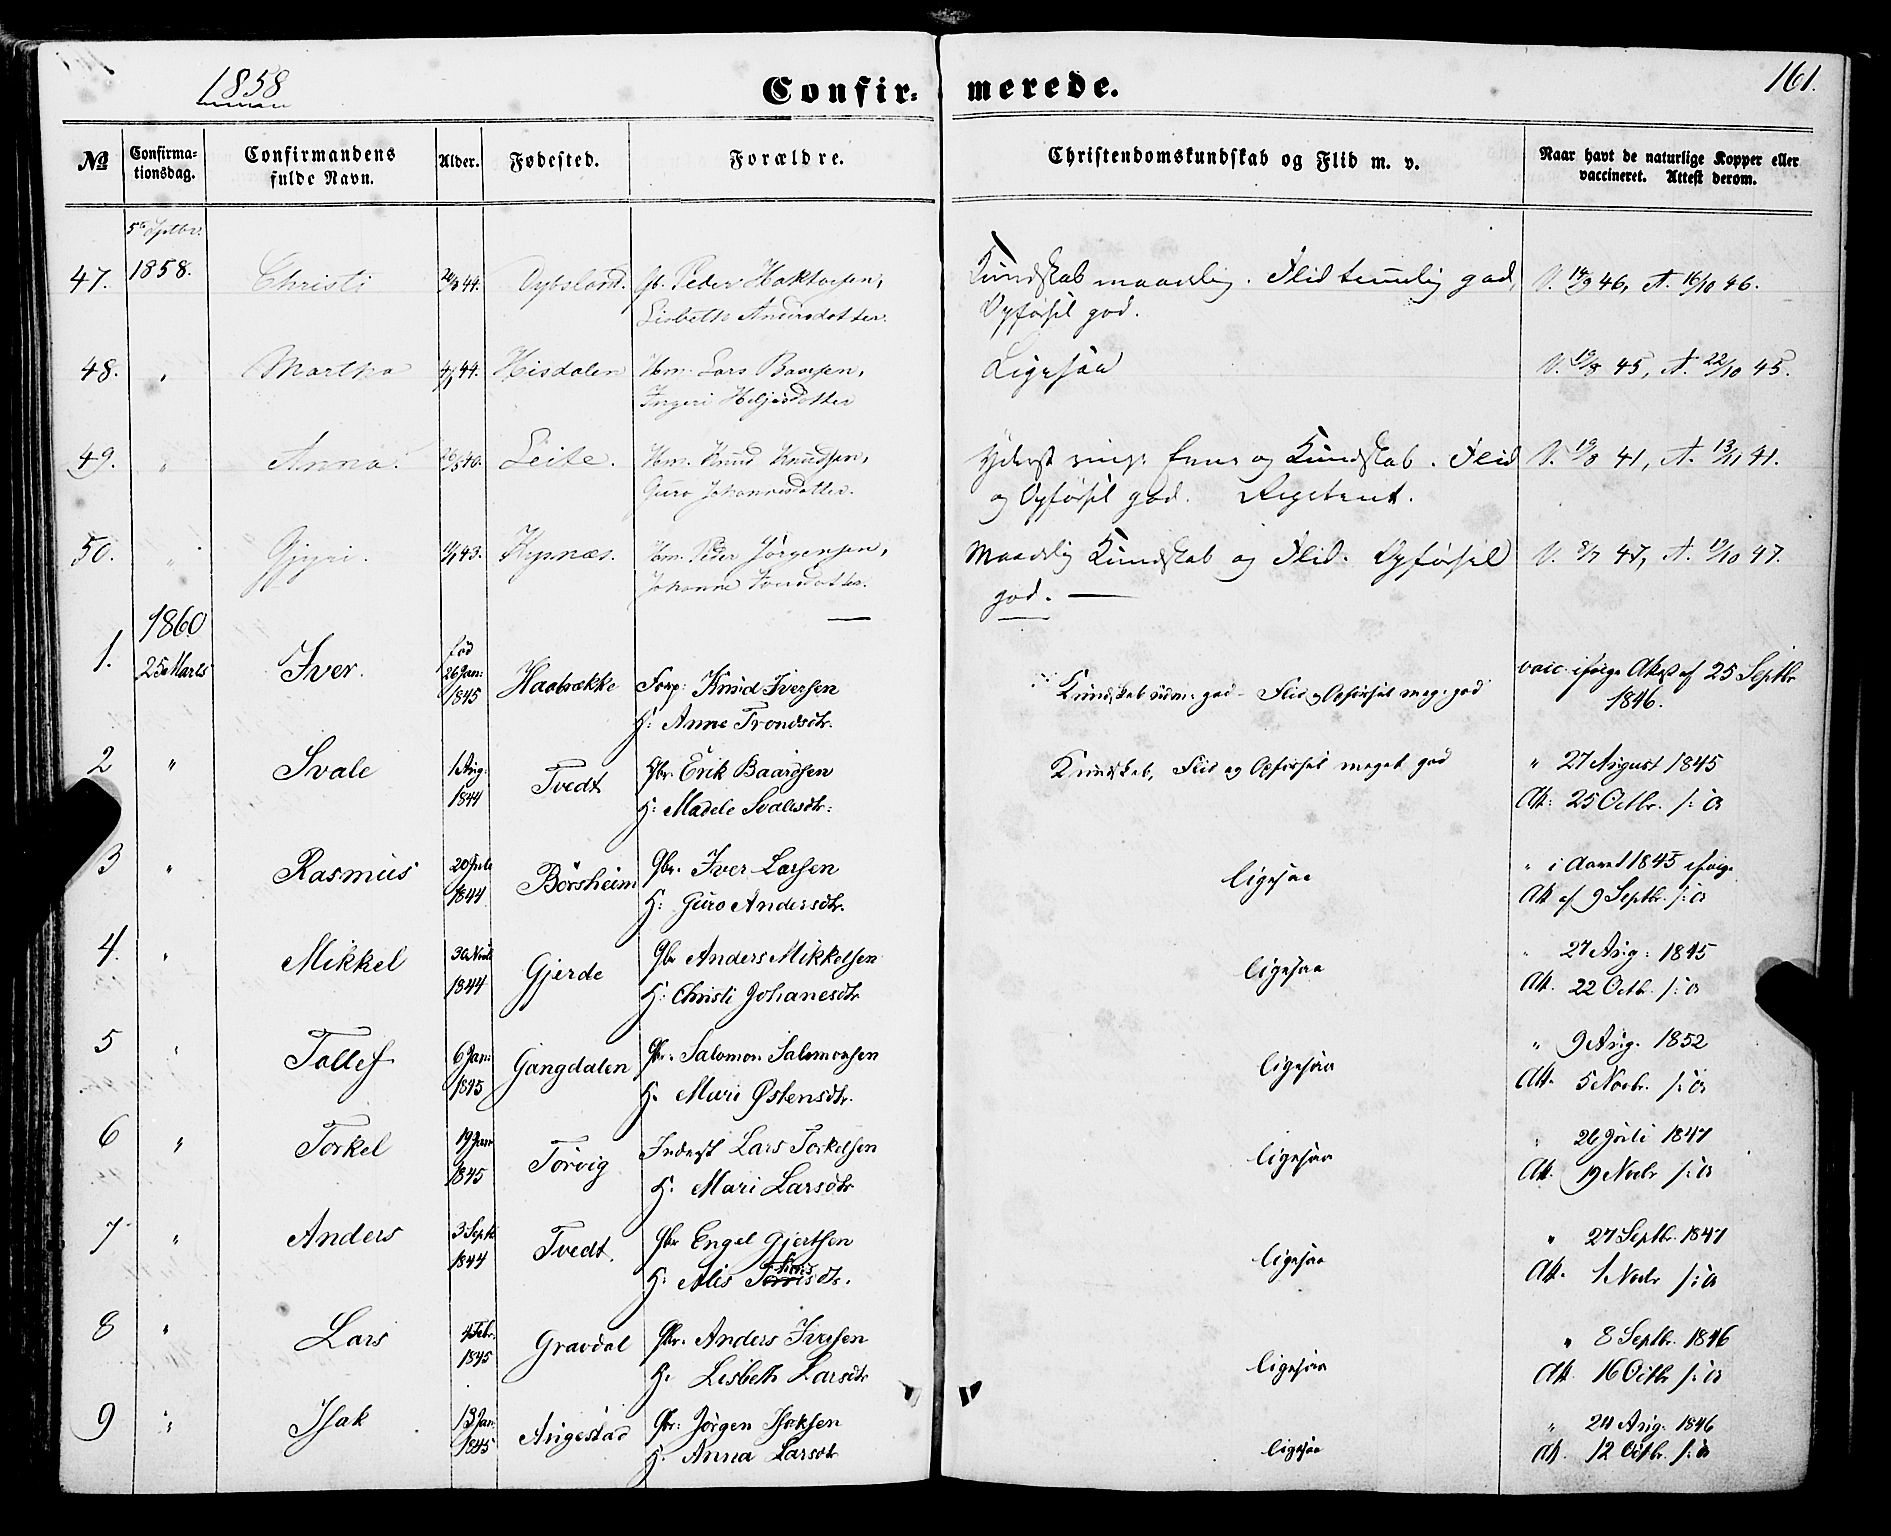 1858
Confir= merede.
161.
No
Confirma=
tionsdag.
Confirmandens
fulde Navn.
Alder.
Fødested.
Forældre.
Christendomskundskab og Flid m. v.
Naar havt de naturlige Kopper eller
vaccineret. Attest derom.
5te Septbr.
47. 1858. Christi 44. Peder Haktorsen, Kundskab maadelig. Flid temmelig god, V. 14/9 46, A. 16/10 46.
Lisbeth Andersdotter. Opførsel god.
48. " Martha 44. Hisdalen Hm. Lars Baarsen, Ligesaa V. 19/8 45, A. 22/10 45.
Ingeri Heljesdotter
49. " Anna. 40. Leite. Hm. Knud Knudsen, Yderst ringe Evne og Kundskab. Flid V. 19/8 41, A. 13/11 41.
Guro Johannesdotter. og Opførsel god.
50. " Gjyri. 43. Hm. Peder Jørgensen, Maadelig Kundskab og Flid. Opførsel V. 8/7 47, A. 19/10 47.
Johanne god. —
1860
1. 25 Marts Iver. fød 26 Jan: 1845 Haabrække Forp: Knud Iversen Kundskab udm: god - Flid og Opførsel meg: god vacc. ifølge Attest af 25 Septbr
H: Anne Trondsdtr. 1846.
2 " Svale 1 Aug: 1844 Tvedt Gbr. Erik Baardsen Kundskab, Flid og Opførsel meget god " 27 August 1845
H: Madele Svalesdtr: Att: 25 Octbr. s: A
3 " Rasmus 20 Juli 1844 Børsheim Gbr. Iver Larsen ligesaa " i Aaret 1845 ifølge
H: Guro Andersdtr. Att af 9 Septbr. s: A
4. " Mikkel 30 Novb 1844 Gjerde Gbr Anders Mikkelsen ligesaa " 27 Aug: 1845
H: Christi Johanesdtr Att. 22 Octb. s: A
5 " Tollef 6 Jan: 1845 Gangdalen Gbr. Salomon Salomonsen ligesaa " 9 Aug. 1852
H. Mari Østensdtr. Att. 5 Novbr. s: A
6 " Torkel 19 Jan 1845 Tørvig Inderst Lars Torkelsen ligesaa " 26 Juli 1847
H: Mari Larsdtr Att. 19 Novbr s: A
7 " Anders 3 Septb 1844 Tvedt. Gbr Engel Gjertsen ligesaa " 27 Septbr. 1847
H: Alis Att. 1 Novbr s: A
8 " Lars 4 Febr. 1845 Gravdal Gbr. Anders Iversen ligesaa " 8 Septbr. 1846
H. Lisbeth Larsdtr Att. 16 Octbr s: A
9 " Isak 13 Jan 1845 Augestad Gbr: Jørgen Isaksen ligesaa " 24 Aug. 1846
H. Anna Larsdtr Att. 12 Octbr. s: A